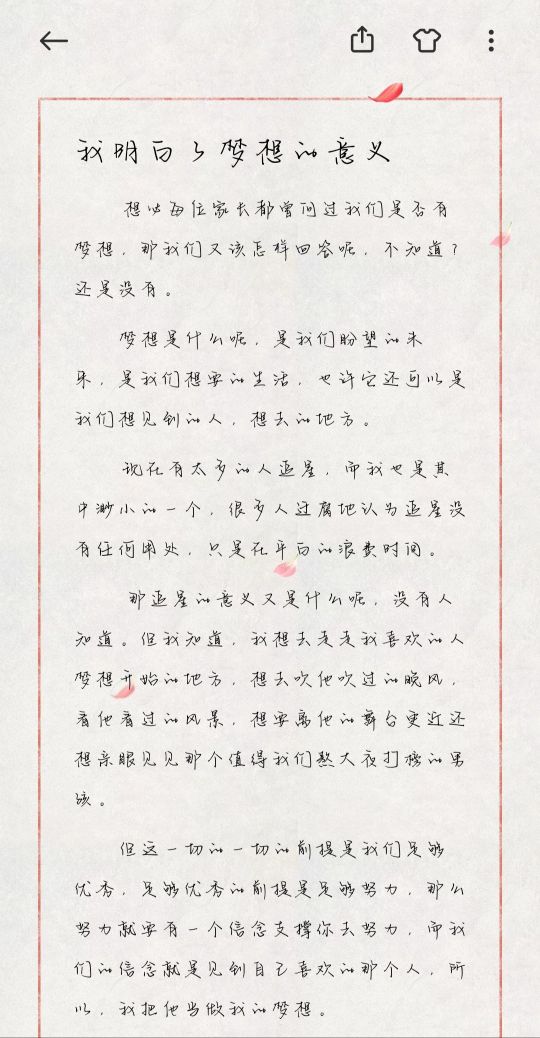 我明白了梦想的意义
想必每位家长都曾问过我们是否有
梦想，那我们又该怎样回答呢，不知道？
还是没有。
梦想是什么呢，是我们盼望的未
来，是我们想要的生活，也许它还可以是
我们想见到的人，想去的地方。
现在有太多的人追星，而我也是其
中渺小的一个，很多人迂腐地认为追星没
有任何用处，只是在平白的浪费时间。
那追星的意义又是什么呢，没有人
知道。但我知道，我想去走走我喜欢的人
梦想开始的地方，想去吹他吹过的晚风，
看他看过的风景，想要离他的舞台更近还
想亲眼见见那个值得我们熬大夜打榜的男
孩。
但这一切的一切的前提是我们足够
优秀，足够优秀的前提是足够努力，那么
努力就要有一个信念支撑你去努力，而我
们的信念就是见到自己喜欢的那个人，所
以，我把他当做我的梦想。